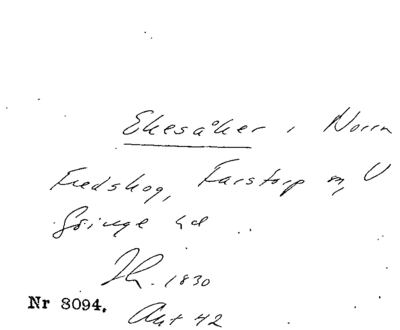 Ekesåker i Norra
Fredskog, Farstorp sn, V
Göinge hd
Ih. 1830
Nr 8094.
Akt 42